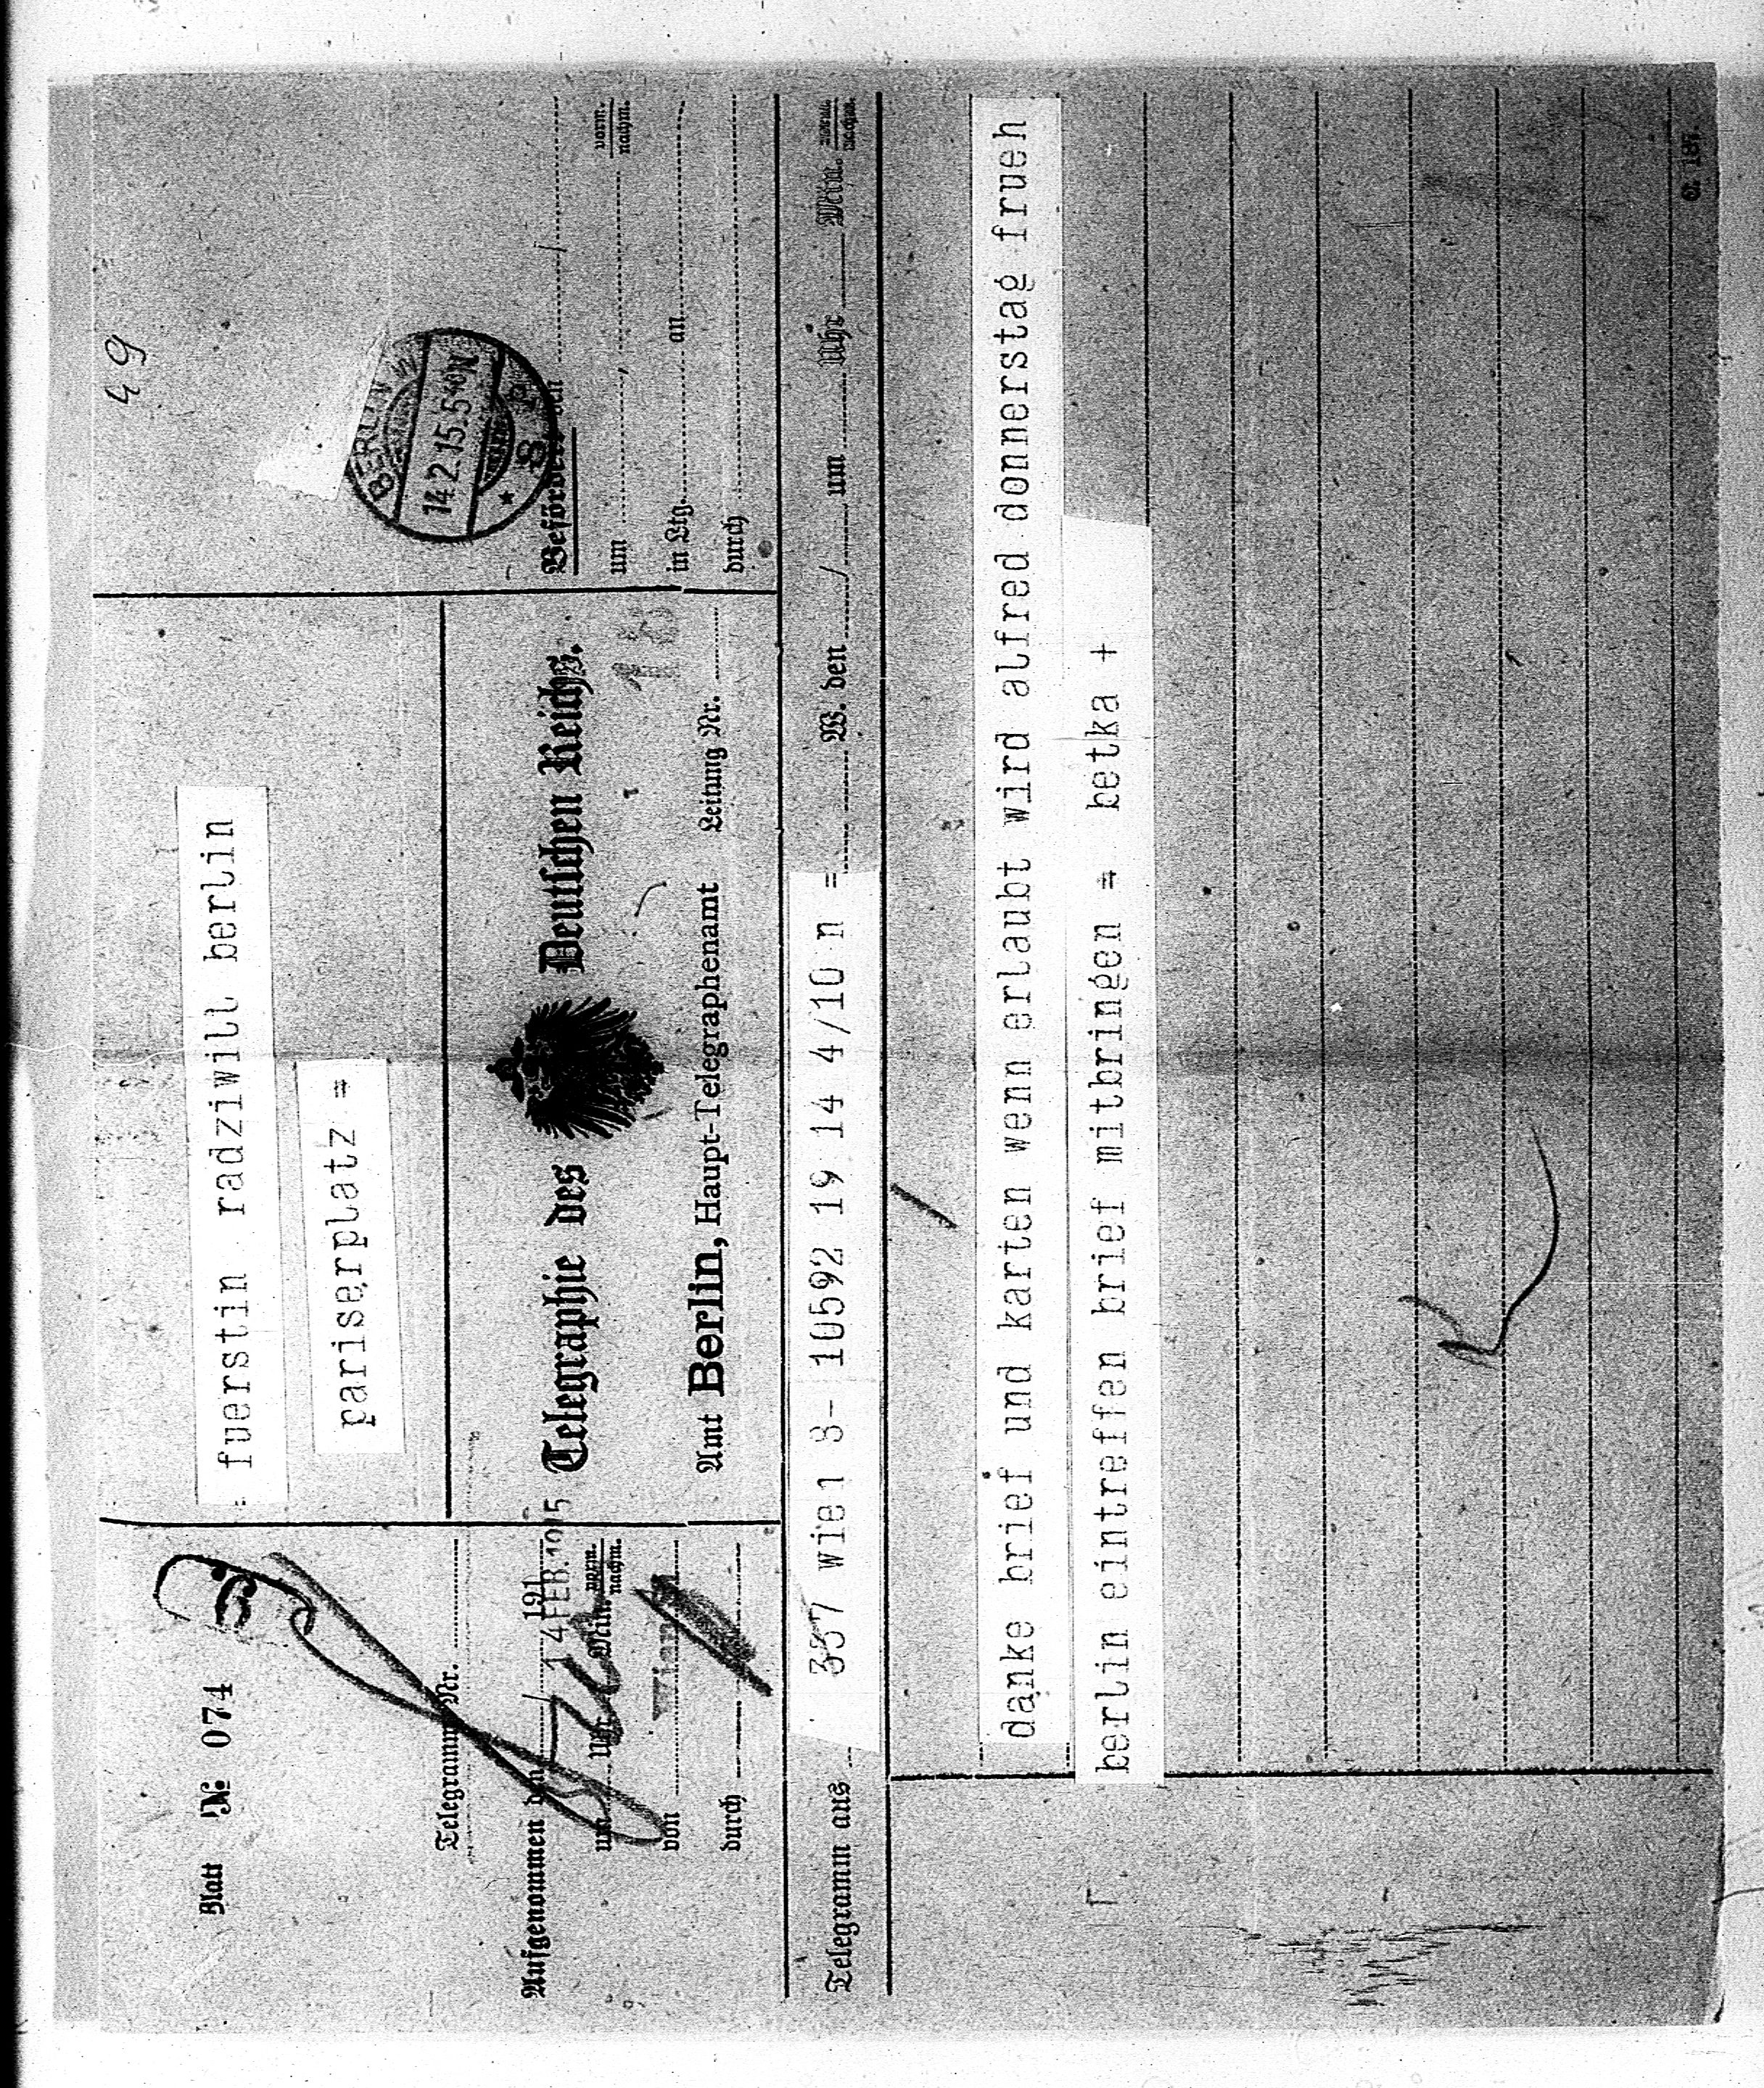 49
Blatt № 074
fuerstin radziwill berlin
pariserplatz =
BERLIN W
14.2.15.5
S P
Telegramm Nr.
Aufgenommen den / 191
14 FEB. 1915
um Uhr Min. vorm. nachm.
von wien
durch
Telegraphie des Deutschen Reichs.
Amt Berlin, Haupt-Telegraphenamt Leitung Nr.
18
Befördert den /
um , vorm. nachm.
in Ltg. an
durch
Telegramm aus 337 wien 3- 10592 19 14 4/10 n = W. den / um Uhr Min. vorm. nachm.
danke brief und karten wenn erlaubt wird alfred donnerstag frueh
berlin eintreffen brief mitbringen = betka +
C. 187.